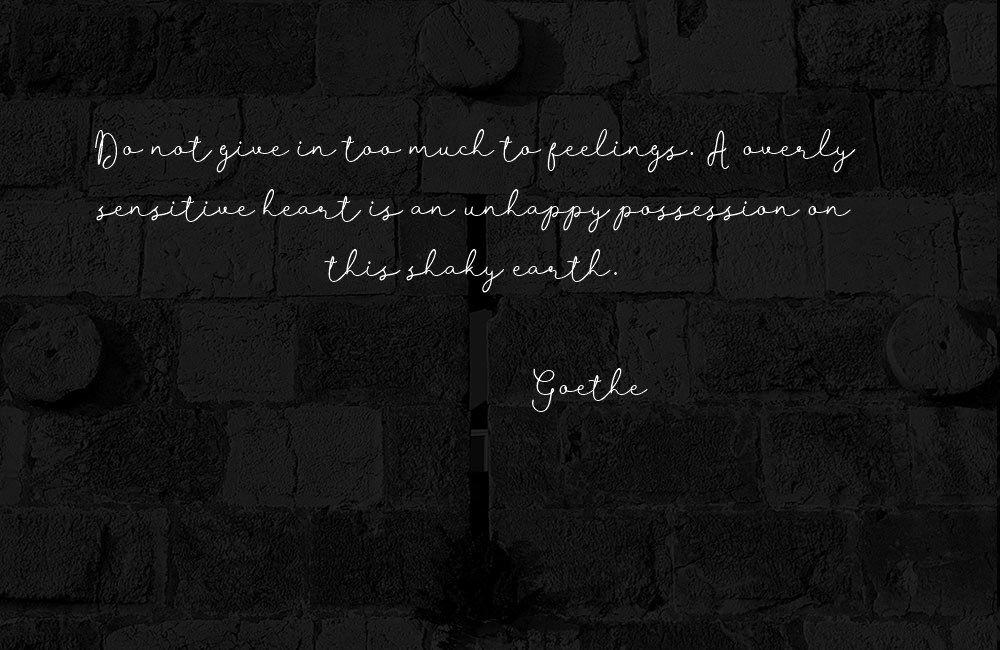 Do not give in too much to feelings. A overly
sensitive heart is an unhappy possession on
this shaky earth.
Goethe